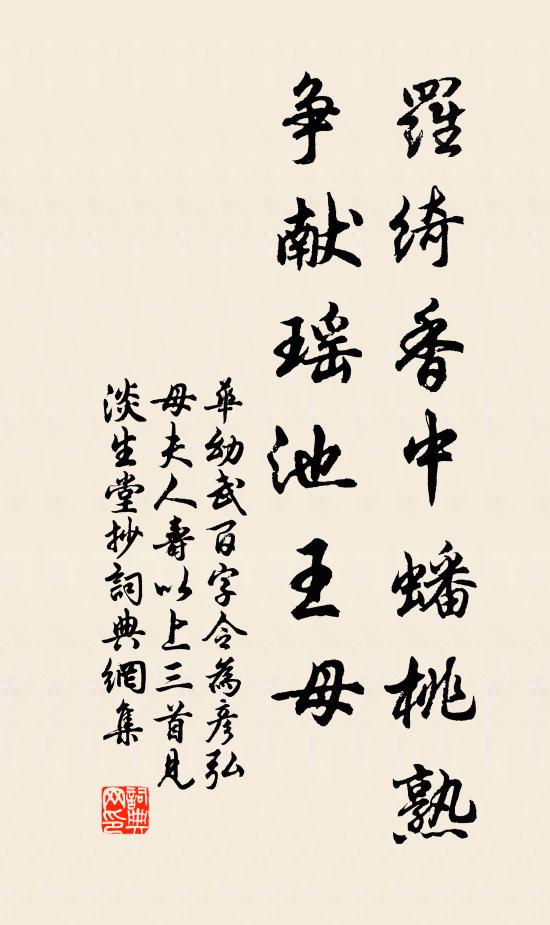 羅綺香中蟠桃熟
争献瑶池王母
華幼武百字令為彦弘
母夫人壽以上三首見
淡生堂抄詞典網集
詞典网印